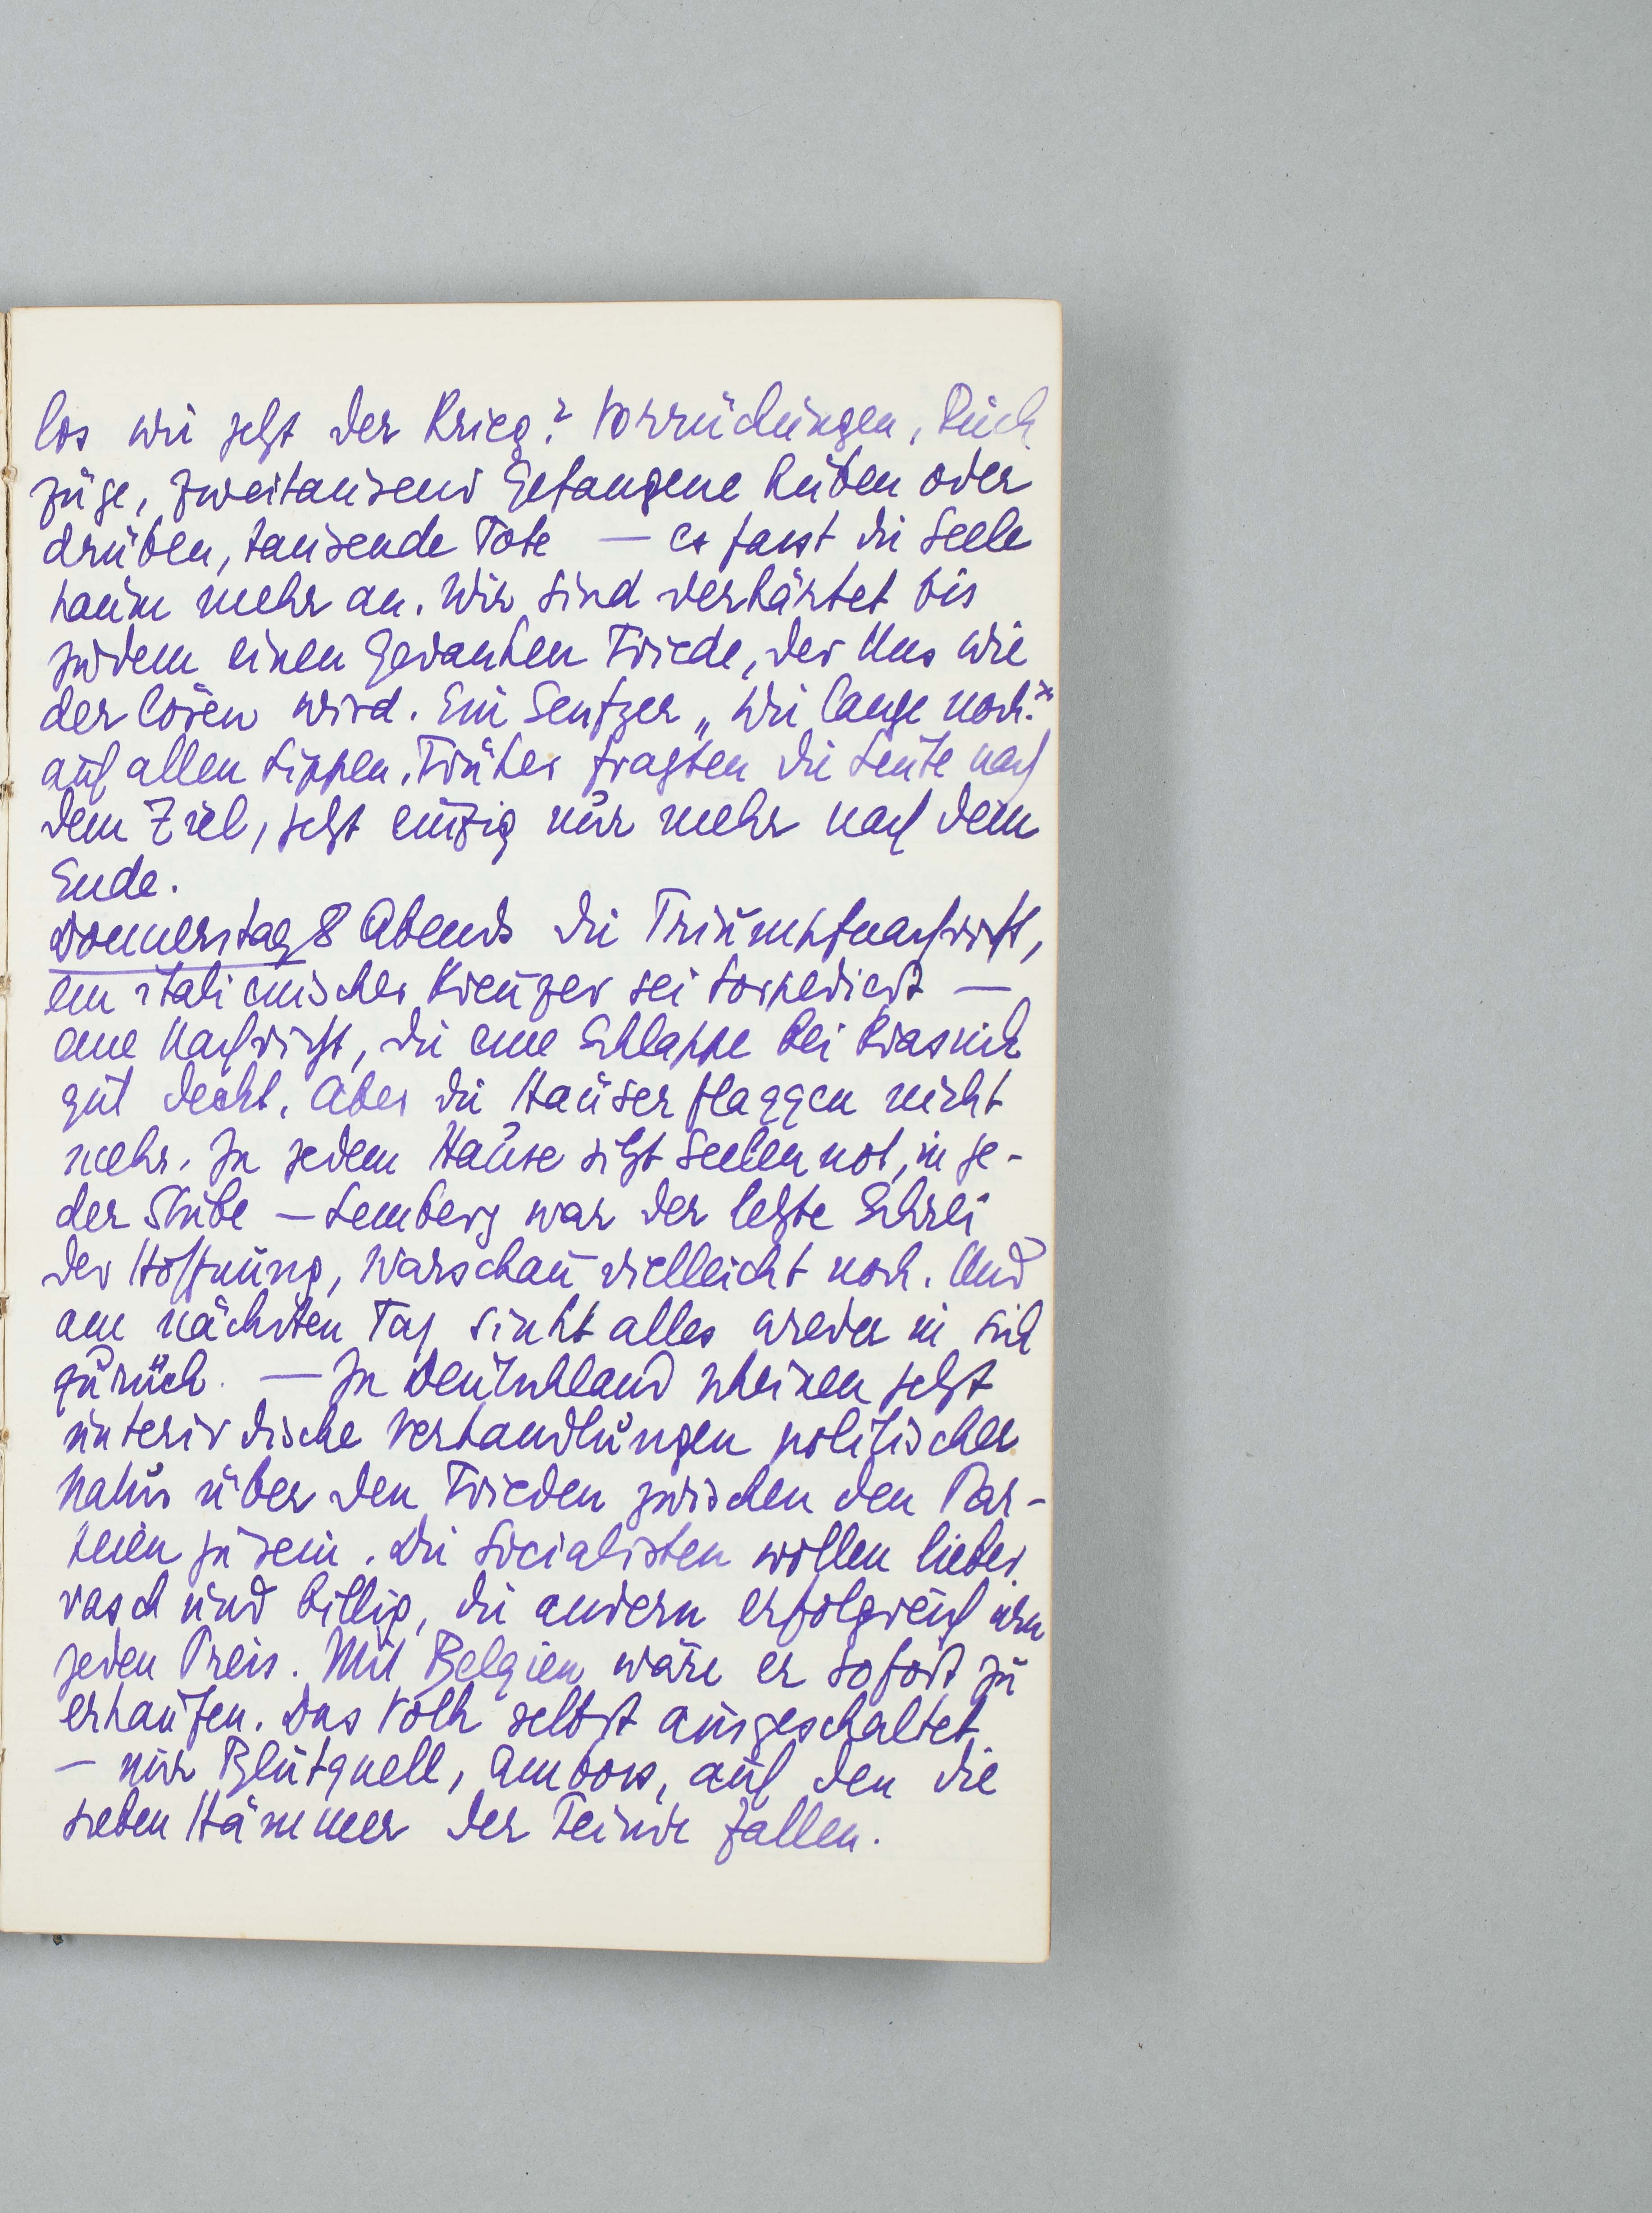 los wie jetzt der Krieg? Vorrückungen, Rück
züge, zweitausend Gefangene hüben oder
drüben, tausende Tote — es fasst die Seele
kaum mehr an. Wir sind verhärtet bis
zu dem einen Gedanken Friede, der uns wie
der lösen wird. Ein Seufzer „Wie lange noch?"
auf allen Lippen. Früher fragten die Leute nach
dem Ziel, jetzt einzig nur mehr nach dem
Ende.
Donnerstag 8 Abends die Triumphnachricht,
ein italienischer Kreuzer sei torpediert —
eine Nachricht, die eine Schlappe bei Krasnik
gut deckt. Aber die Häuser flaggen nicht
mehr. In jedem Hause sitzt Seelennot, in je-
der Stube — Lemberg war der letzte Schrei
der Hoffnung, Warschau vielleicht noch. Und
am nächsten Tag sinkt alles wieder in sich
zurück. — In Deutschland scheinen jetzt
unterirdische Verhandlungen politischer
Natur über den Frieden zwischen den Par-
teien zu sein. Die Socialisten wollen lieber
rasch und billig, die andern erfolgreich um
jeden Preis. Mit Belgien wäre er sofort zu
erkaufen. Das Volk selbst ausgeschaltet
— nur Blutquell, Amboss, auf den die
sieben Hämmer der Feinde fallen.